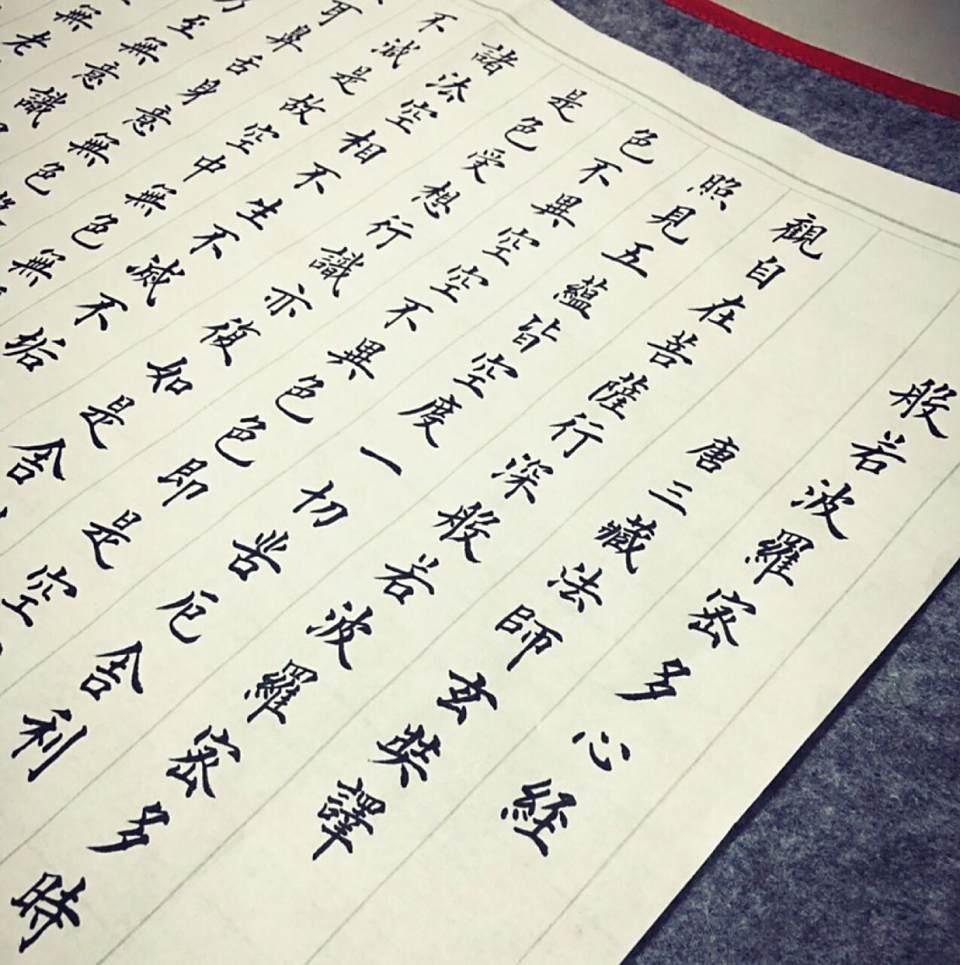 般若波羅密多心經
唐三藏法師玄奘譯
觀自在菩薩行深般若波羅密多時
照見五蘊皆空度一切苦厄舍利
色不異空空不異色色即是空
是色受想行識亦復如是舍
諸法空相不生不滅不垢
不減是故空中無色無
耳鼻舌身意無色
乃至無意識
無老